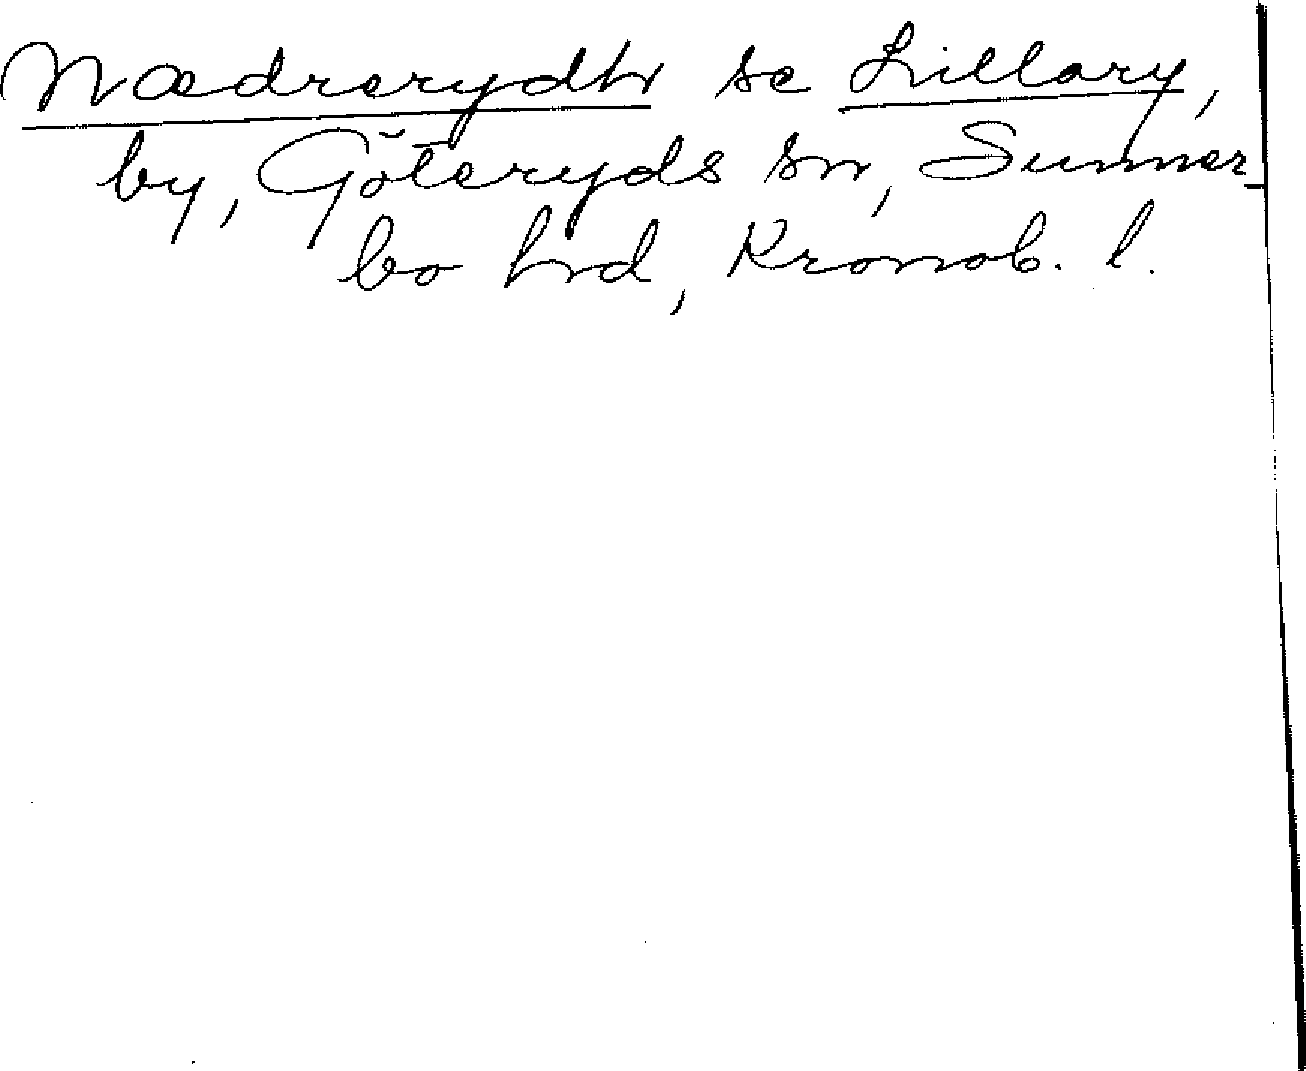 Nædrerydh se Lillary,
by, Göteryds sn, Sunner-
bo hd, Kronob. l.